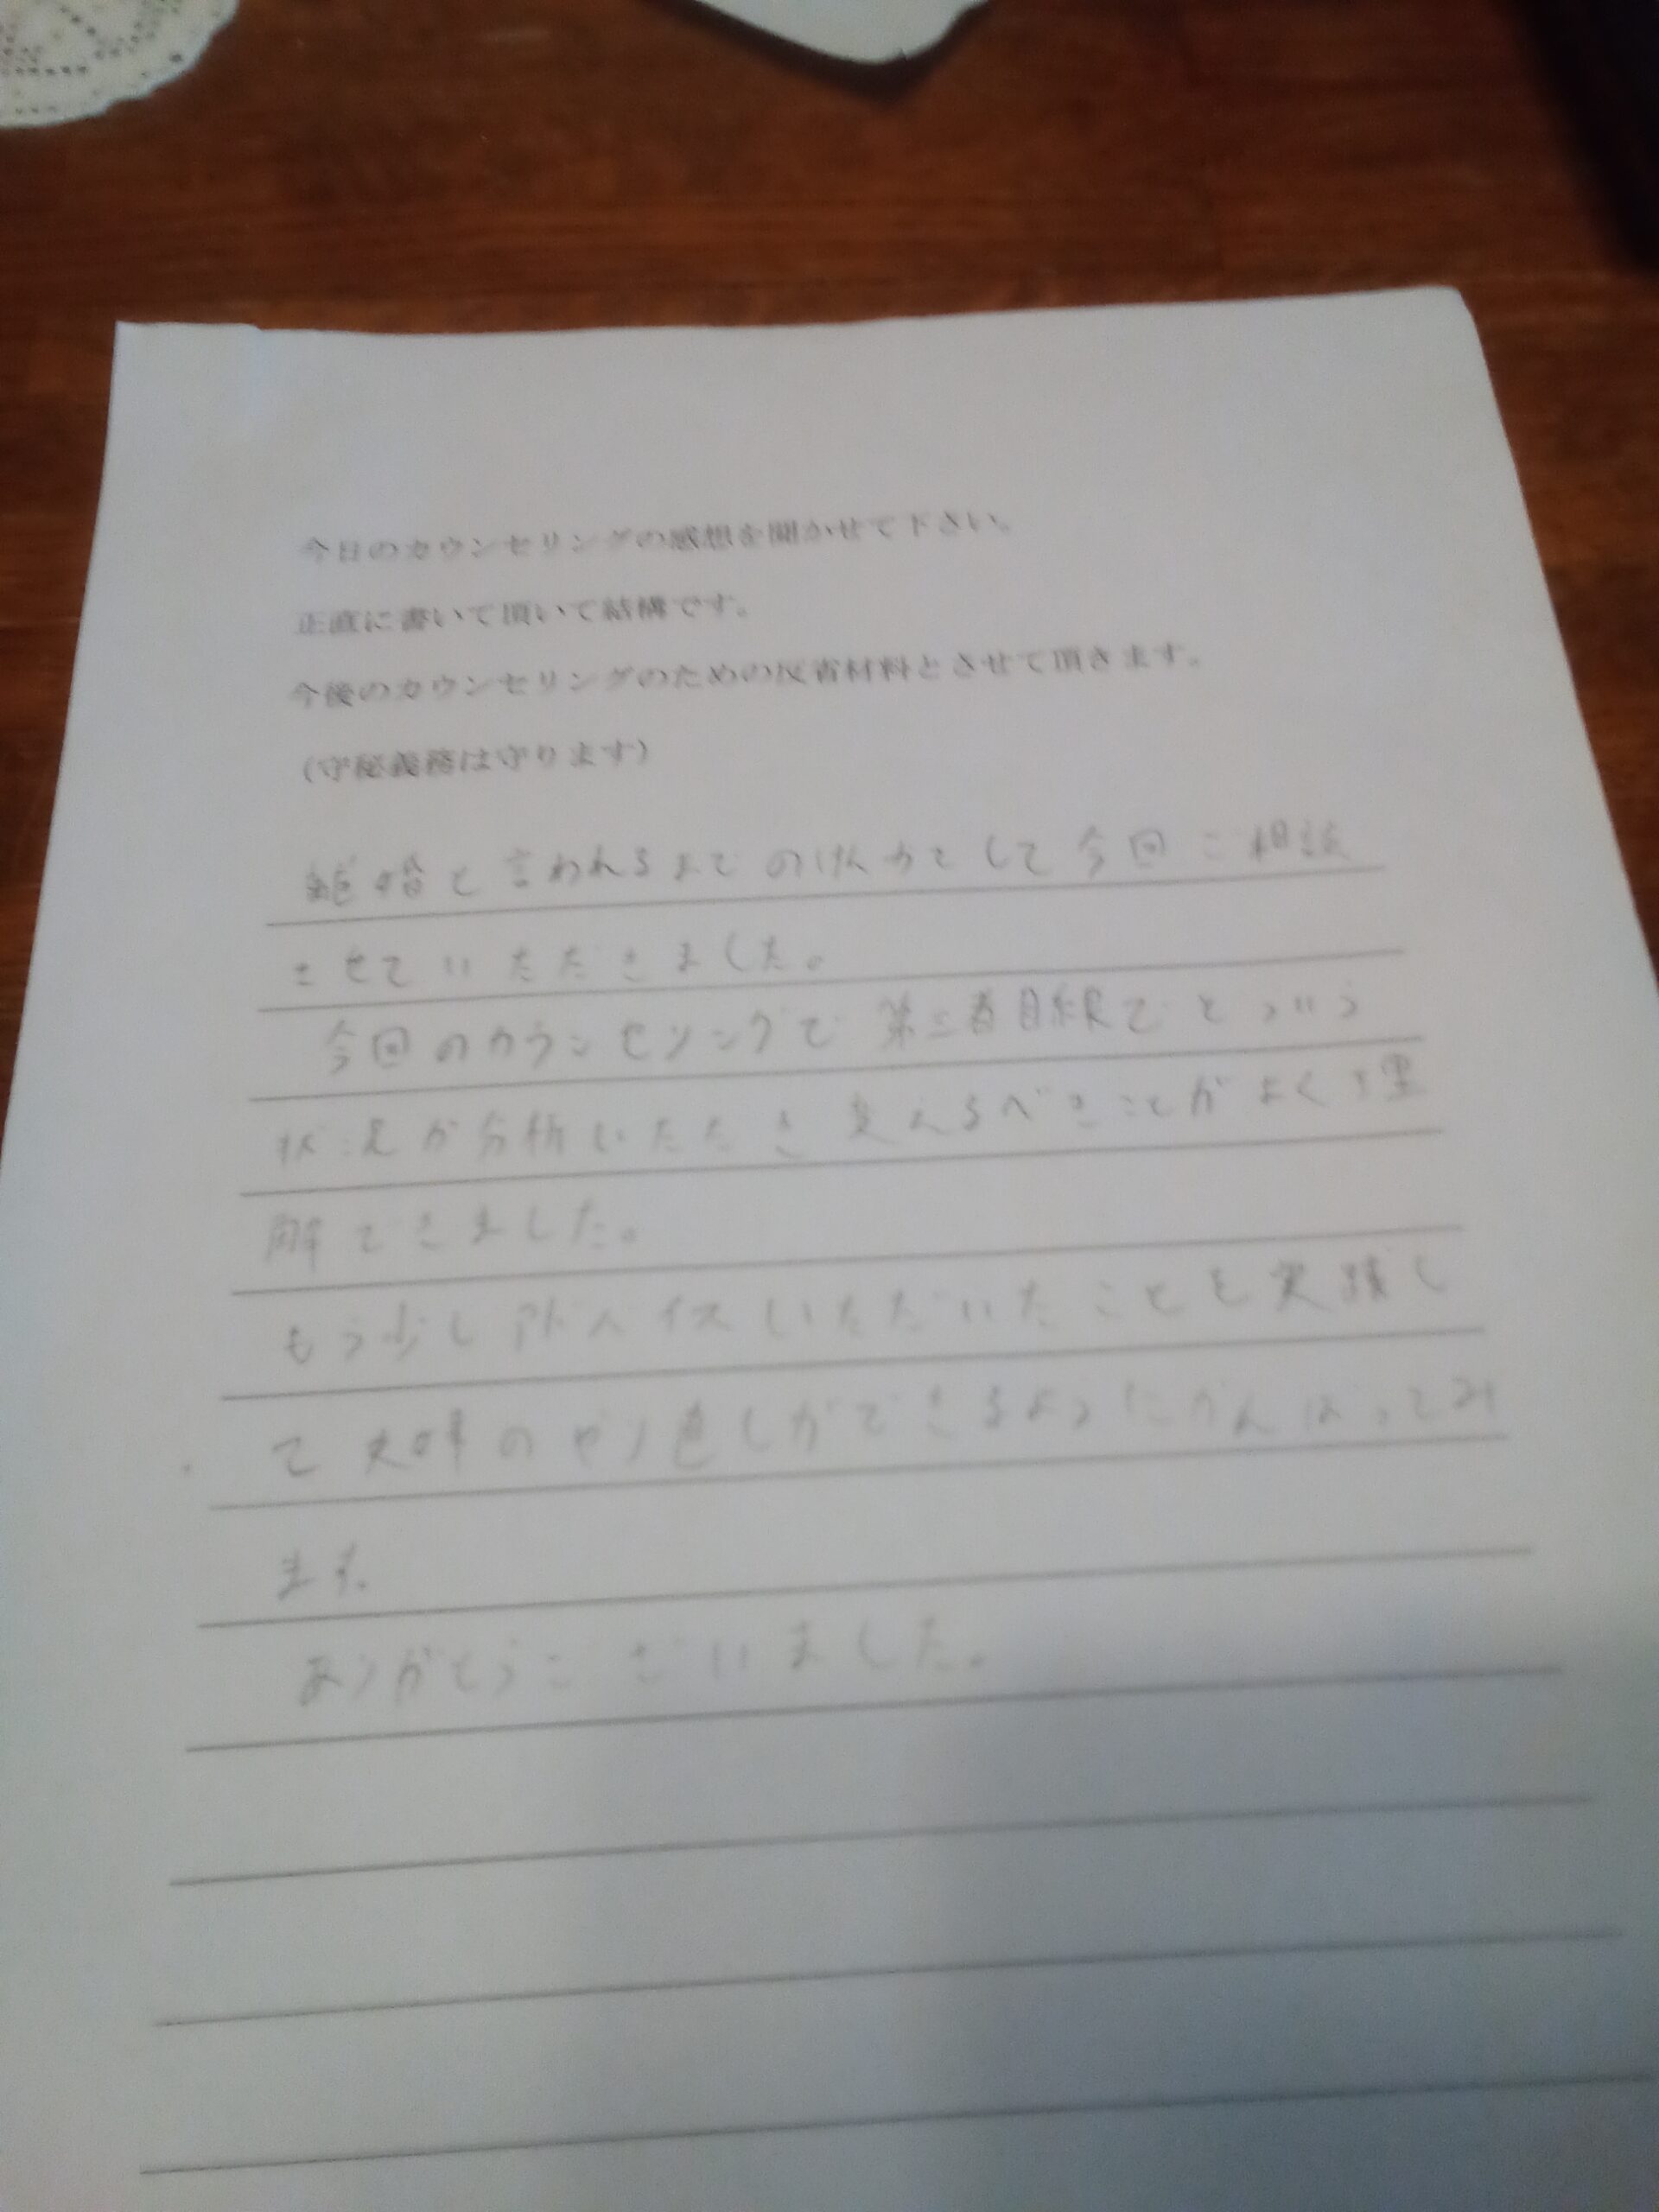 今日のカウンセリングの感想を聞かせて下さい。
正直に書いて頂いて結構です。
今後のカウンセリングのための反省材料とさせて頂きます。
(守秘義務は守ります)
離婚と言われるまでのけんかをして今回ご相談
させていただきました。
今回のカウンセリングで第三者目線でどういう
状況か分析いただき変えるべきことがよく理
解できました。
もう少しアドバイスいただいたことを実践し
て夫婦のやり直しができるようにがんばってみ
ます。
ありがとうございました。